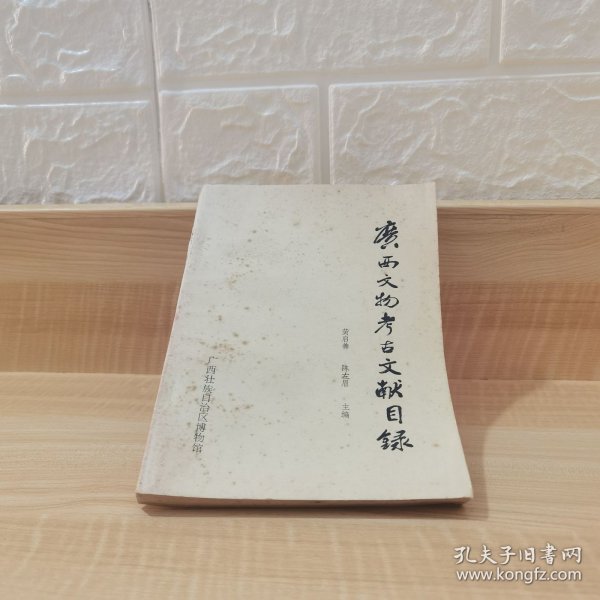 廣西文物考古文献目録
黄启善 陈左眉 主编
广西壮族自治区博物馆
孔夫子旧书网
www.kongfz.com